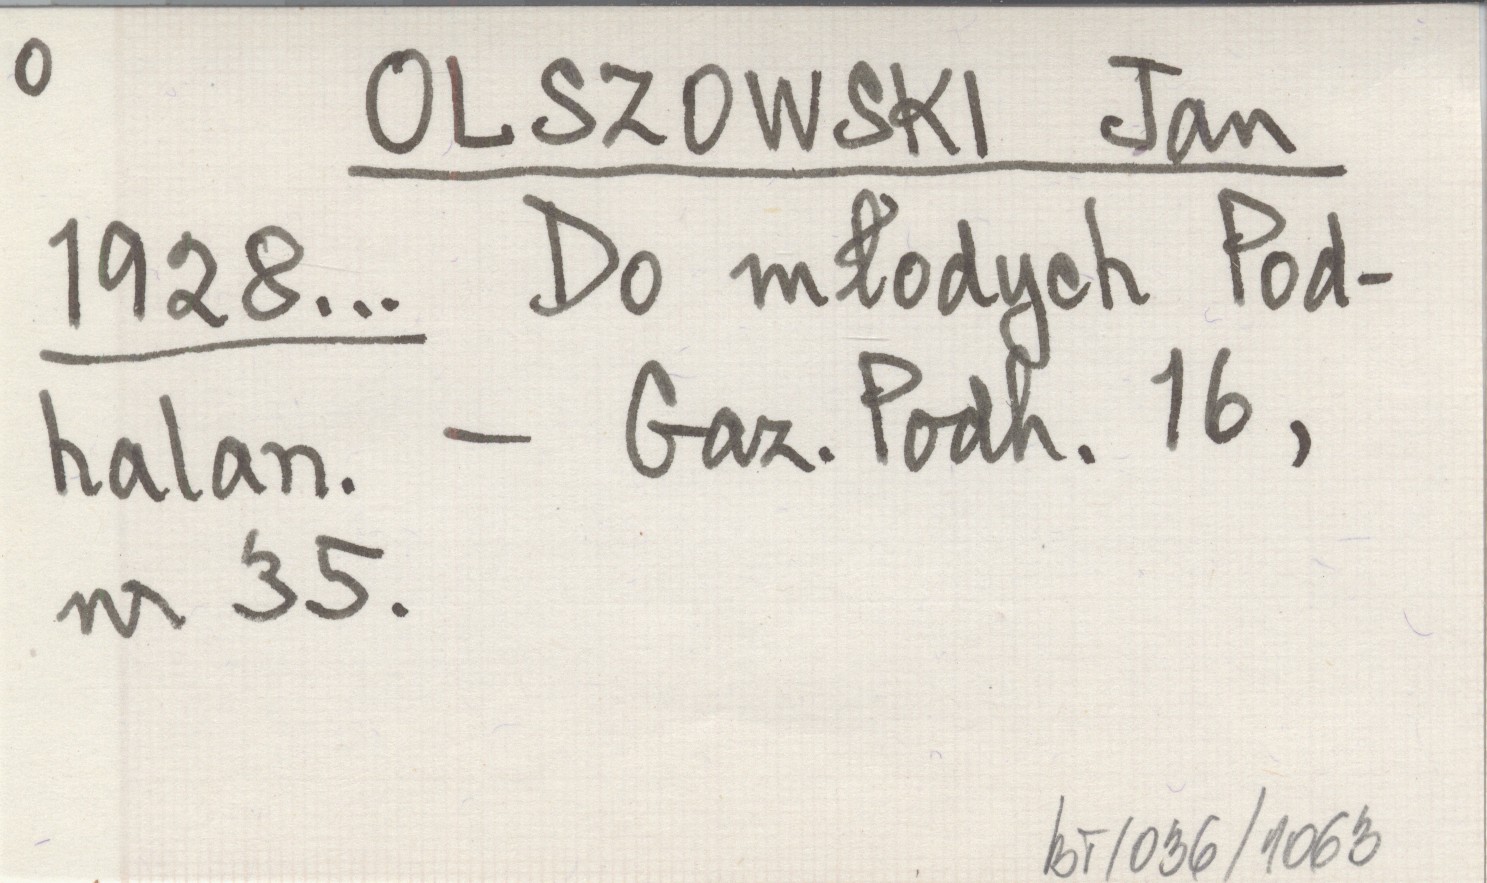 O
OLSZOWSKI Jan
1928... Do młodych Pod-
halan. - Gaz. Podh. 16,
nr 35.
bT/036/1063